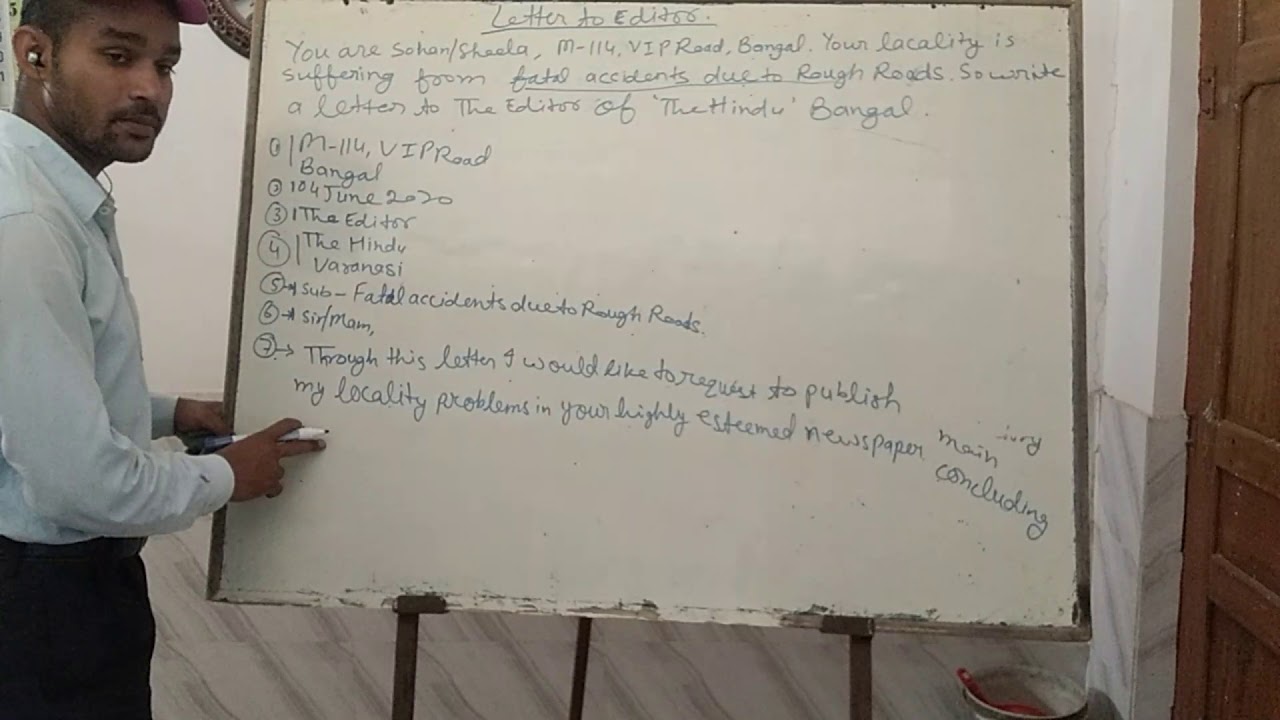 Letter to Editor.
You are Sohan/Sheela, M-114, VIP Road, Bangal. Your lacality is
suffering from fatal accidents due to Rough Roads. So write
a letter to The Editor of 'The Hindu' Bangal.
① M-114, VIP Road
Bangal
② 04 June 2020
③ The Editor
④ The Hindu
Varanasi
⑤→ Sub- Fatal accidents due to Rough Roads.
⑥→ Sir/Mam,
⑦→ Through this letter I would like to request to publish
my locality problems in your highly esteemed newspaper
main
concluding